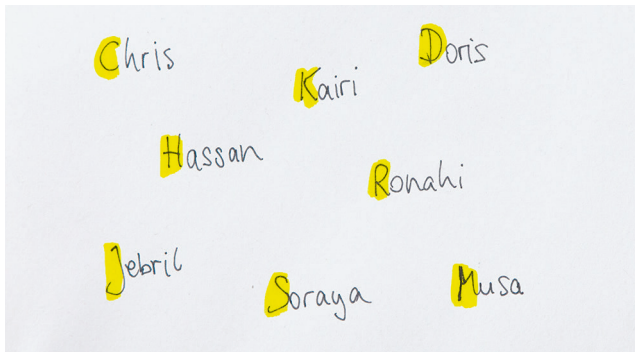 Chris
Doris
Kairi
Hassan
Ronahi
Jebril
Soraya
Musa